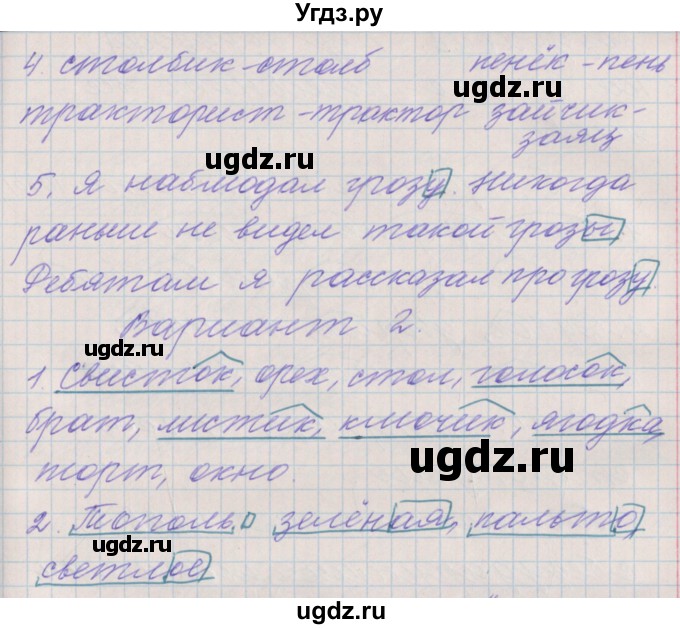 Угдз.ру
4 столбик - столб пенёк - пень
тракторист - трактор зайчик -
заяц
ugdz.ru
ugdz.ru
5. Я наблюдал грозу. Никогда
раньше не видел такой грозы.
Ребятам я рассказал про грозу.
ugdz.ru
Вариант 2.
ugdz.ru
1. Свисток, орех, стол, голосок,
брат, листик, ключик, ягодка,
ugdz.ru
торт, окно.
2. Тополь зелёная, пальто,
ugdz.ru
светлое
ugdz.ru